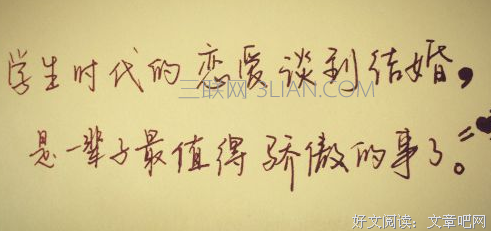 学生时代的恋爱谈到结婚，
三联网 3LIAN.COM
是一辈子最值得骄傲的事了。
好文阅读：文章吧网